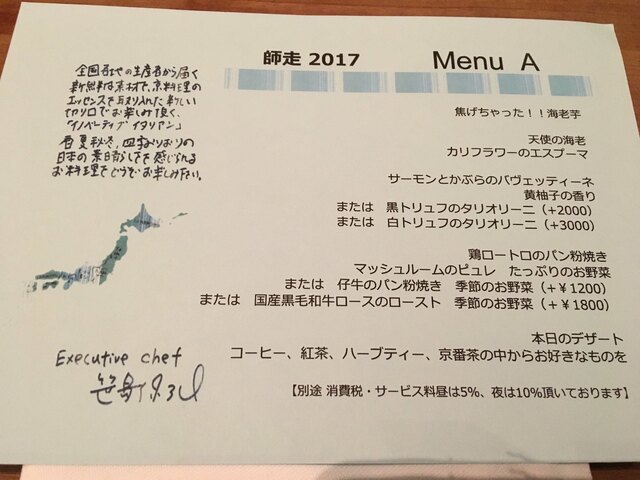 師走 2017
Menu A
全国各地の生産者から届く
新鮮な素材で、京料理の
エッセンスを取り入れた新しい
切り口でお楽しみ頂く、
「イノベーティブイタリアン」
春夏秋冬、四季おりおりの
日本の素晴らしさを感じられる
お料理をどうぞお楽しみ下さい。
Executive chef
焦げちゃった！！海老芋
天使の海老
カリフラワーのエスプーマ
サーモンとかぶらのバヴェッティーネ
黄柚子の香り
または 黒トリュフのタリオリーニ（+2000）
または 白トリュフのタリオリーニ（+3000）
鶏ロートロのパン粉焼き
マッシュルームのピュレ たっぷりのお野菜
または 仔牛のパン粉焼き 季節のお野菜（+￥1200）
または 国産黒毛和牛ロースのロースト 季節のお野菜（+￥1800）
本日のデザート
コーヒー、紅茶、ハーブティー、京番茶の中からお好きなものを
【別途 消費税・サービス料昼は5%、夜は10%頂いております】